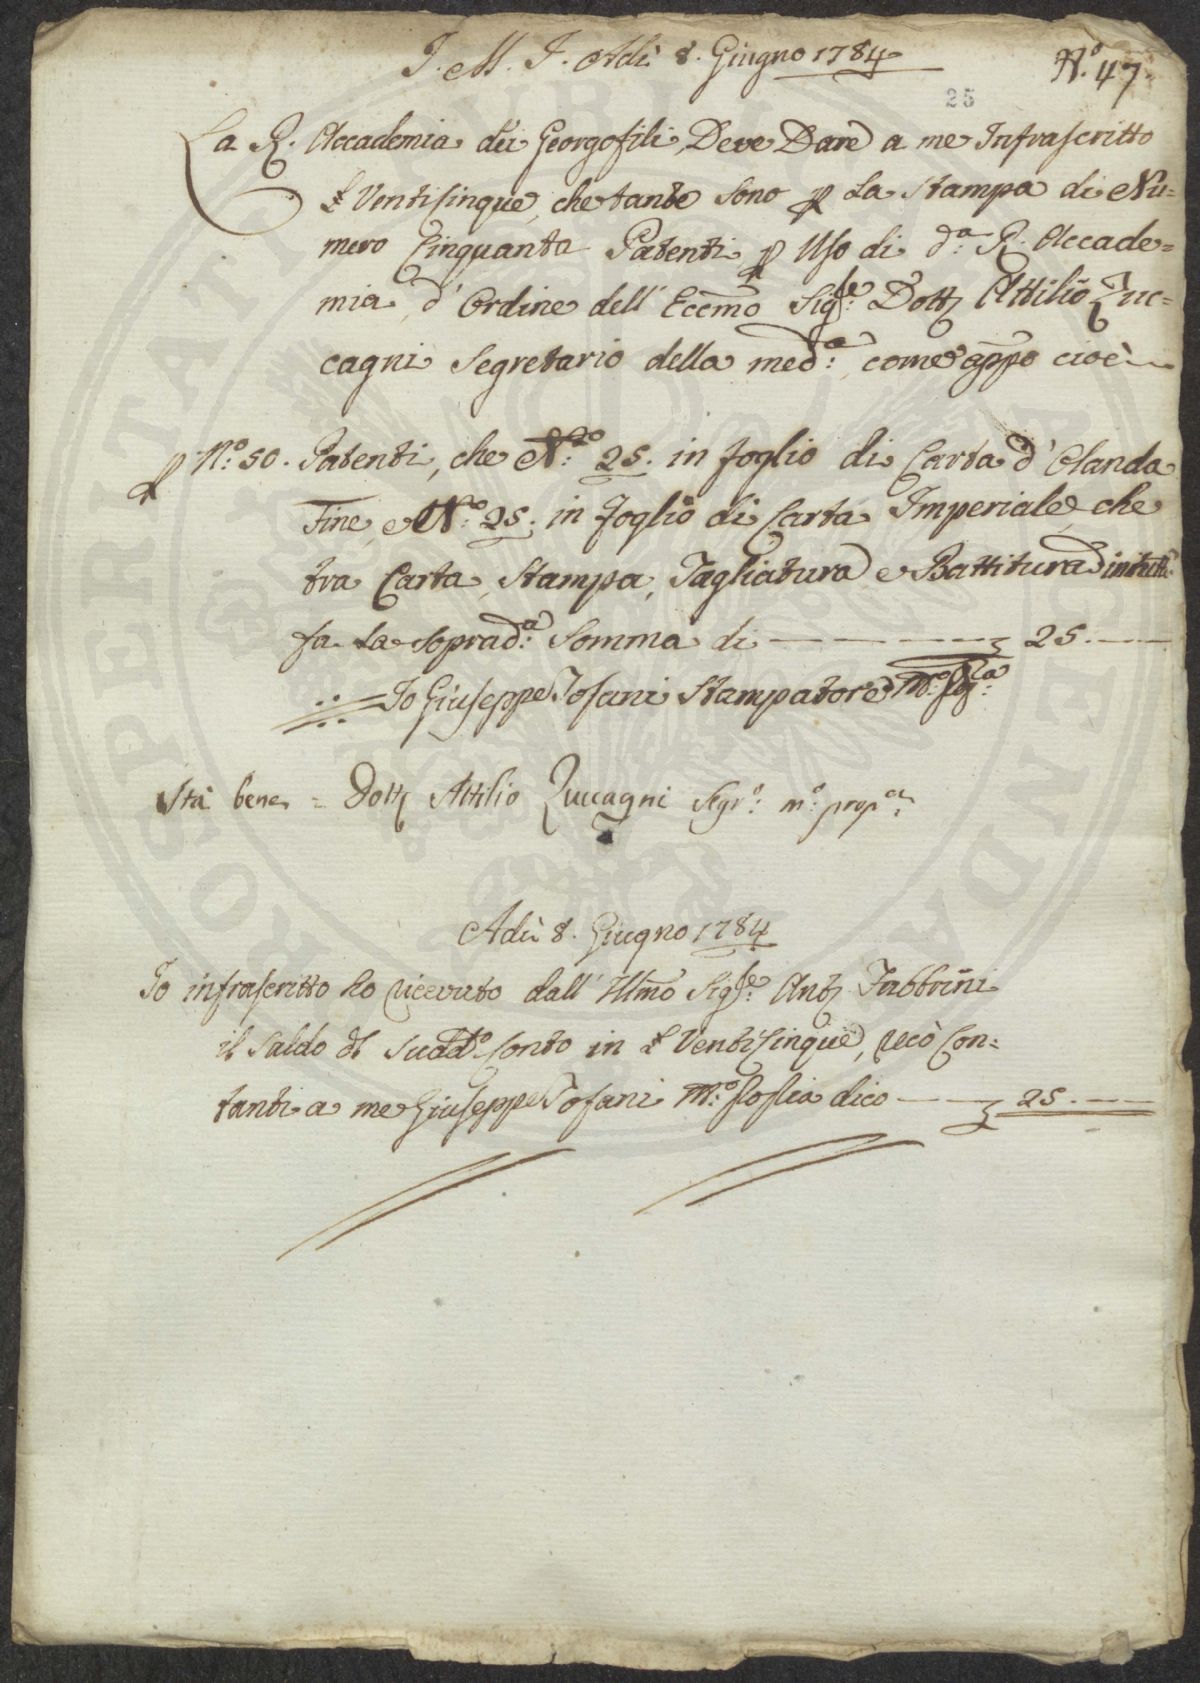 J. M. J. Adì 8. Giugno 1784
N.° 47
25
La R. Accademia dei Georgofili, Deve Dare a me Infrascritto
£ Venticinque, che tante sono p La Stampa di Nu=
mero Cinquanta Patenti p Uso di d.a R. Accade=
mia, d'Ordine dell' Eccmo Sig.re Dott. Attilio Zuc=
cagni Segretario della med.a, come appo cioè
p N.° 50. Patenti, che N.° 25. in foglio di Carta d'Olanda
Fine, e N.° 25. in foglio di Carta Imperiale, che
tra Carta, Stampa, Tagliatura e Battitura in tutto
fa La soprad.a Somma di — £ 25.—
Io Giuseppe Tofani Stampatore
Sta bene = Dott. Attilio Zuccagni Segr.° m.° prop.a
Adì 8. Giugno 1784
Io infrascritto ho ricevuto dall' Illmo Sig.re Ant. Fabbrini
il Saldo di Sudd.° Conto in £ Venticinque, recò Con=
tanti a me Giuseppe Tofani M.° dico — £ 25.—